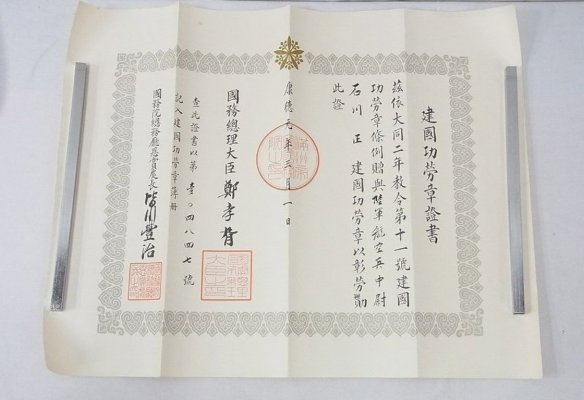 建國功勞章證書
茲依大同二年教令第十一號建國
功勞章條例贈與陸軍航空兵中尉
石川正建國功勞章以彰勞勳
此證
康德元年三月一日
國務總理大臣 鄭孝胥
查此證書以第壹〇四八四七號
記入建國功勞章簿冊
國務院總務廳恩賞處長 皆川豐治